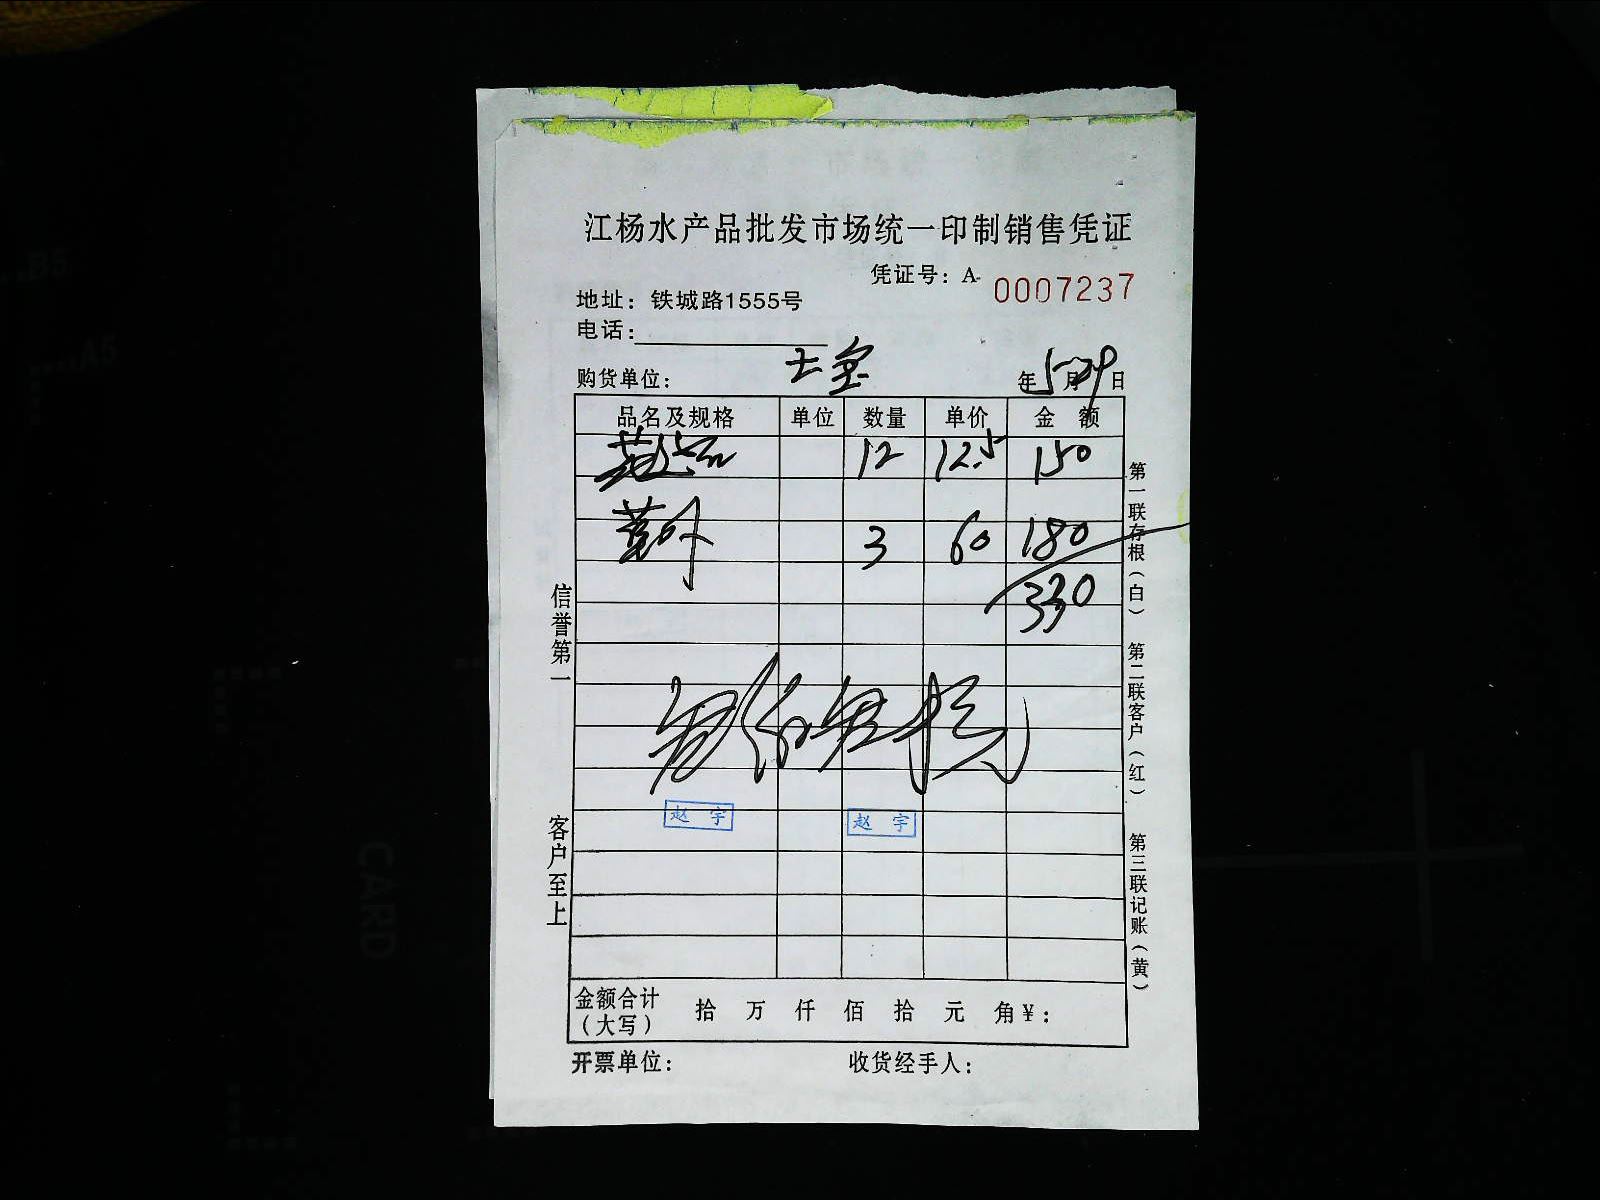 江杨水产品批发市场统一印制销售凭证
凭证号：A 0007237
地址：铁城路1555号
电话：
购货单位： 年5月29日
品名及规格 单位 数量 单价 金额
12 12.5 150
3 60 180
330
赵宇 赵宇
金额合计（大写） 拾 万 仟 佰 拾 元 角￥：
开票单位： 收货经手人：
信誉第一
客户至上
第一联存根（白）
第二联客户（红）
第三联记账（黄）